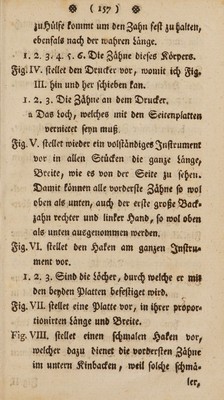 ( 157 )
zu Hülfe kommt um den Zahn fest zu halten,
ebenfals nach der wahren Länge.
1. 2. 3. 4. 5. 6. Die Zähne dieses Körpers.
Fig. IV. stellet den Drucker vor, womit ich Fig.
III. hin und her schieben kan.
1. 2. 3. Die Zähne an dem Drucker.
a Das Loch, welches mit den Seitenplatten
vernietet seyn muß.
Fig. V. stellet wieder ein volständiges Instrument
vor in allen Stücken die ganze Länge,
Breite, wie es von der Seite zu sehen.
Damit können alle vorderste Zähne so wol
oben als unten, auch der erste große Back-
zahn rechter und linker Hand, so wol oben
als unten ausgenommen werden.
Fig. VI. stellet den Haken am ganzen Instru-
ment vor.
1. 2. 3. Sind die Löcher, durch welche er mit
den beyden Platten befestiget wird.
Fig. VII. stellet eine Platte vor, in ihrer propor-
tionirten Länge und Breite.
Fig. VIII. stellet einen schmalen Haken vor,
welcher dazu dienet die vordersten Zähne
im untern Kinbacken, weil solche schmä-
ler,